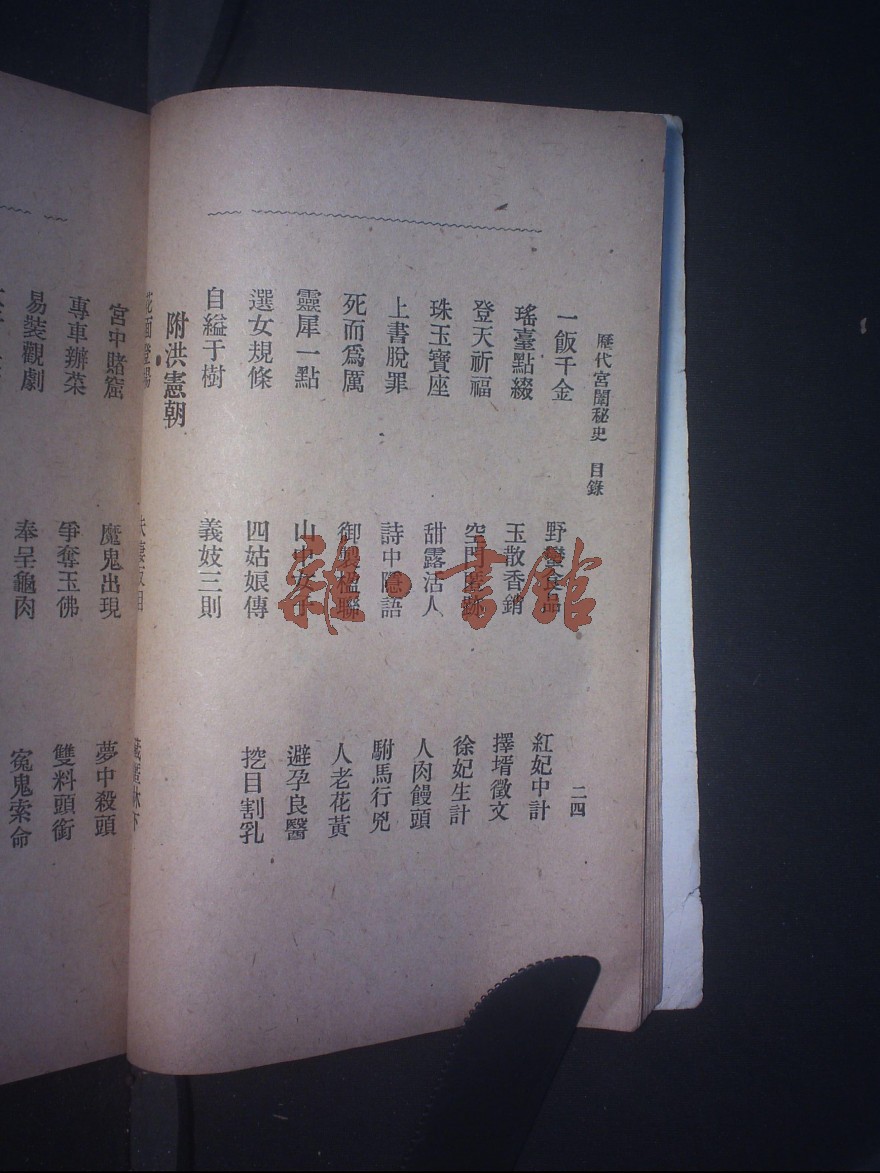 歷代宮闈秘史 目錄 二四
一飯千金 野蠻食品 紅妃中計
瑤臺點綴 玉散香銷 擇壻徵文
登天祈福 徐妃生計
珠玉寶座 甜露活人 人肉饅頭
上書脫罪 詩中隱語 駙馬行兇
死而爲厲 御製楹聯 人老花黃
靈犀一點 避孕良醫
選女規條 四姑娘傳 挖目割乳
自縊于樹 義妓三則
附洪憲朝
宮中賭窟 魔鬼出現 夢中殺頭
專車辦菜 爭奪玉佛 雙料頭銜
易裝觀劇 奉呈龜肉 冤鬼索命
雜·書館